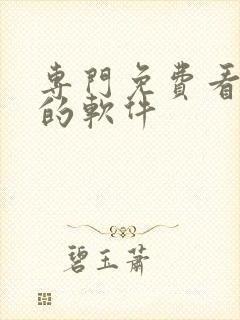 專門免費看
的軟件
碧玉蕭